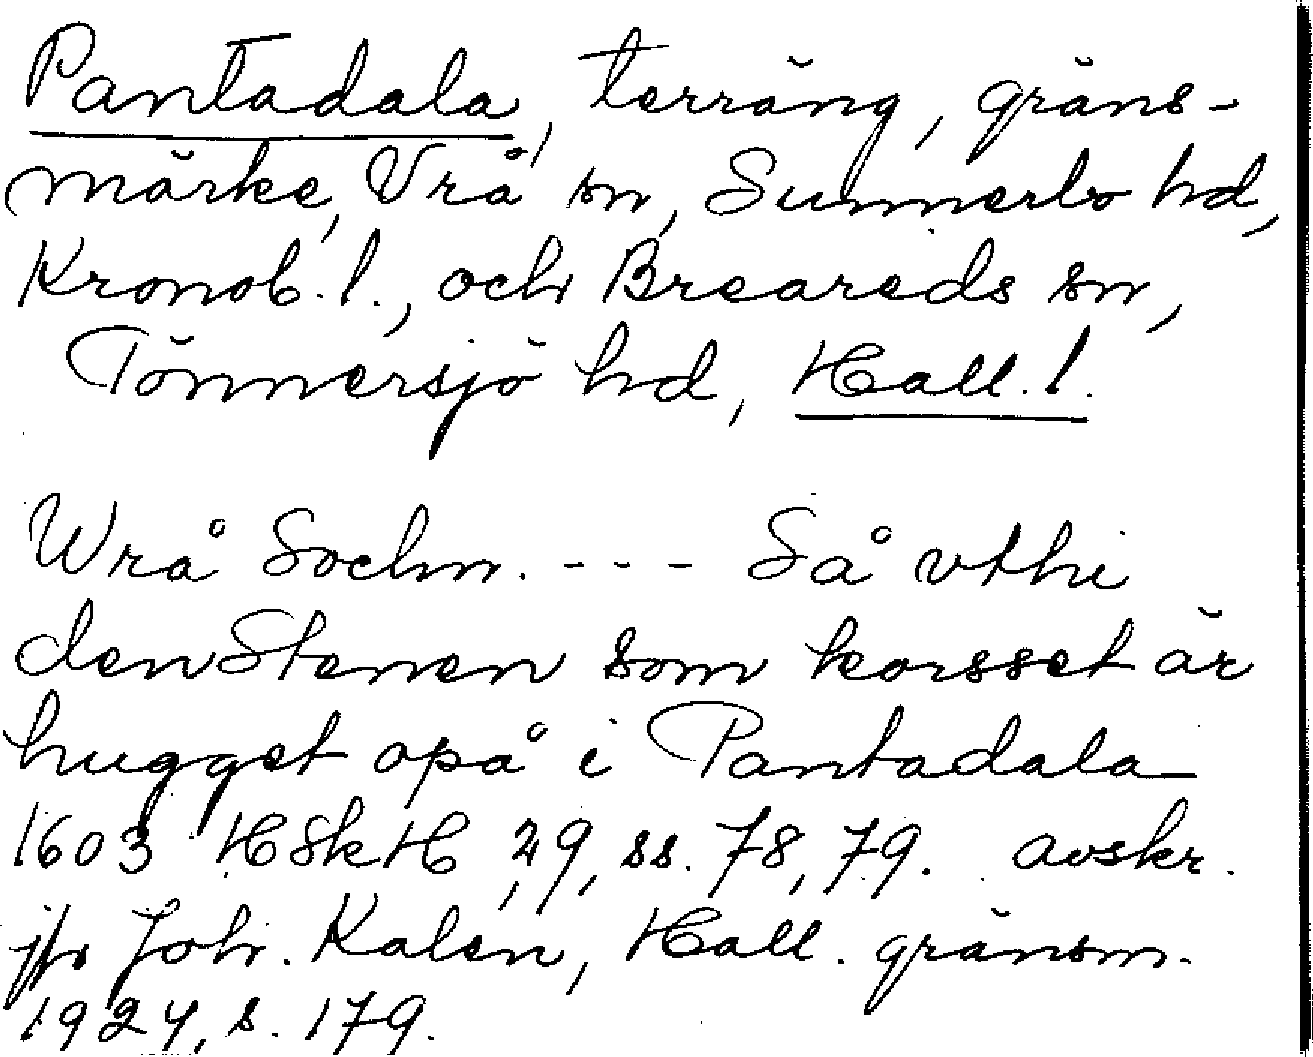 Pantadala, terräng, gräns-
märke, Vrå sn, Sunnerbo hd,
Kronob. l., och Breareds sn,
Tönnersjö hd, Hall. l.
Wrå Sochn. --- Så vthi
den Stenen som korsset är
hugget opå i Pantadala
1603 HSkH, 29, ss. 78, 79. avskr.
jfr Joh. Kalén, Hall. gränsm.
1924, s. 179.